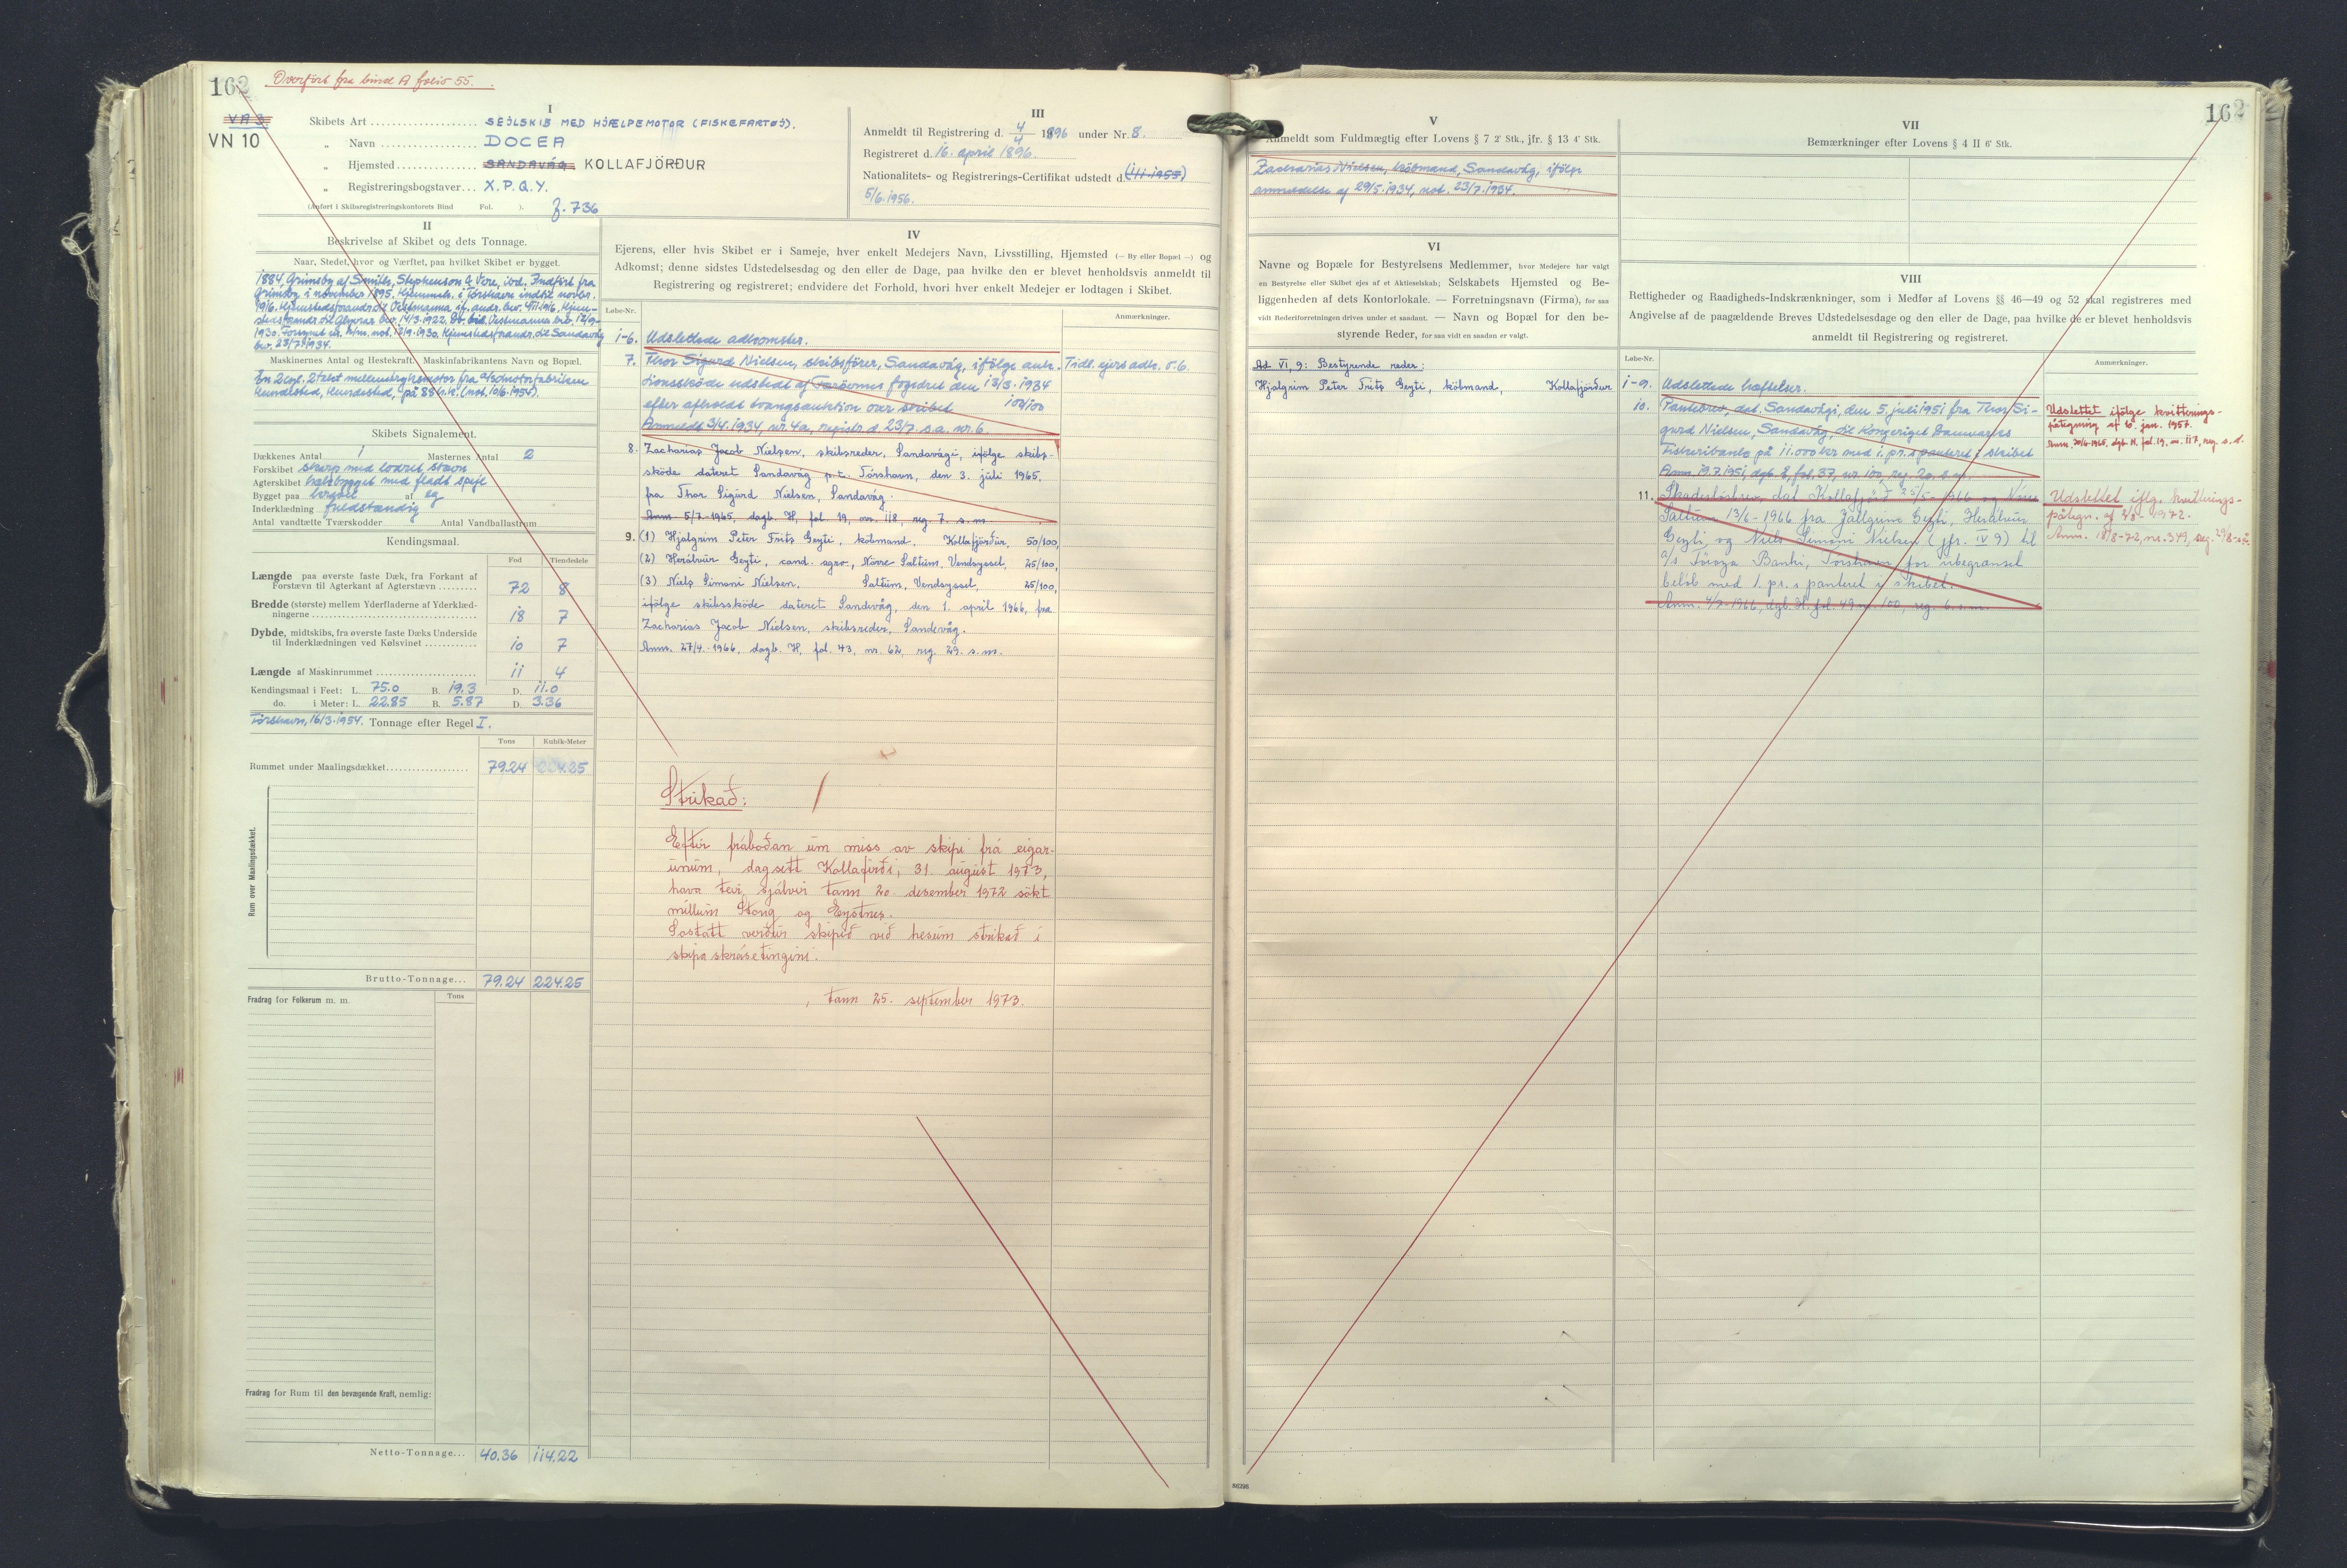 162
Overført fra bind A folio 55.
VA 3
VN 10
I
Skibets Art SEJLSKIB MED HJÆLPEMOTOR (FISKEFARTØJ).
„ Navn DOCEA
„ Hjemsted SANDAVÁG KOLLAFJÖRÐUR
„ Registreringsbogstaver X.P.Q.Y.
(Anført i Skibsregistreringskontorets Bind Fol. ). f. 736
III
Anmeldt til Registrering d. 4/4 1896 under Nr. 8.
Registreret d. 16. april 1896.
Nationalitets- og Registrerings-Certifikat udstedt d.
5/6.1956.
II
Beskrivelse af Skibet og dets Tonnage.
Naar, Stedet, hvor og Værftet, paa hvilket Skibet er bygget.
1884, Grimsby af Smiths, Stephenson & Vere, ibd. Indført fra
Grimsby i november 1895. Hjemmeh. i Tórshavn indtil novbr.
1916. Hjemstedsforandr. til Vestmanna
14/3.1922. Vestmanna
1930. 12/9.1930. Hjemstedsforandr. til Sandavág
bev. 23/7.1934.
Maskinernes Antal og Hestekraft. Maskinfabrikantens Navn og Bopæl.
En 2 cyl. 2 takt mellemtryksmotor fra A/S motorfabriken
Hundested, Hundested, på 85 h.k. (not. 10/6.1954).
Skibets Signalement.
Dækkenes Antal 1 Masternes Antal 2
Forskibet skarp med lodret stævn
Agterskibet hækbygget med fladt spejl
Bygget paa kravel af eg
Inderklædning fuldstændig
Antal vandtætte Tværskodder Antal Vandballastrum
Kendingsmaal.
Fod Tiendedele
Længde paa øverste faste Dæk, fra Forkant af
Forstævn til Agterkant af Agterstævn 72 8
Bredde (største) mellem Yderfladerne af Yderklæd-
ningerne 18 7
Dybde, midtskibs, fra øverste faste Dæks Underside
til Inderklædningen ved Kølsvinet 10 7
Længde af Maskinrummet 11 4
Kendingsmaal i Feet: L. 75.0 B. 19.3 D. 11.0
do. i Meter: L. 22.85 B. 5.87 D. 3.36
Tórshavn, 16/3.1954. Tonnage efter Regel I.
Tons Kubik-Meter
Rummet under Maalingsdækket 79.24 224.25
Rum over Maalingsdækket.
Brutto-Tonnage... 79.24 224.25
Fradrag for Folkerum m. m. Tons
Fradrag for Rum til den bevægende Kraft, nemlig:
Netto-Tonnage... 40.36 114.22
IV
Ejerens, eller hvis Skibet er i Sameje, hver enkelt Medejers Navn, Livsstilling, Hjemsted (— By eller Bopæl —) og
Adkomst; denne sidstes Udstedelsesdag og den eller de Dage, paa hvilke den er blevet henholdsvis anmeldt til
Registrering og registreret; endvidere det Forhold, hvori hver enkelt Medejer er lodtagen i Skibet.
Løbe-Nr. Anmærkninger.
1-6. Udslettede adkomster.
7. Thor Sigurd Nielsen, skibsfører, Sandavág, ifølge auk- Tidl. ejers adk. s. 6.
tionsskøde udstedt af Færøernes fogedret den 13/3.1934
efter afholdt tvangsauktion over skibet 100/100
Anmeldt 3/4.1934, nr. 4a, registr. d. 23/7. s.a. nr. 6.
8. Zacharias Jacob Nielsen, skibsreder, Sandavági, ifølge skibs-
skøde dateret Sandavág p.t. Tórshavn, den 3. júli 1965.
fra Thor Sigurd Nielsen, Sandavág.
Anm. 5/7-1965, dagb. H, fol. 19, nr. 118, reg. 7. s.m.
9. (1) Hjalgrim Peter Frits Geyti, købmand, Kollafjørður, 50/100,
(2) Herálvur Geyti, cand. agro, Nørre Saltum, Vendsyssel, 25/100,
(3) Niels Simoni Nielsen, Saltum, Vendsyssel, 25/100,
ifølge skibsskøde dateret Sandavág, den 1. april 1966, fra
Zacharias Jacob Nielsen, skibsreder, Sandavág.
Anm. 27/4.-1966, dagb. H, fol. 43, nr. 62, reg. 29. s.m.
Strikað:
Eftir fráboðan um miss av skipi frá eigar-
unum, dagsett Kollafirði, 31. august 1973,
hava teir sjálvir tann 20. desember 1972 søkt
millum Stong og Eystnes.
Sostatt verður skipið við hesum strikað í
skipaskrásetingini.
, tann 25. september 1973.
162
V
Anmeldt som Fuldmægtig efter Lovens § 7 2' Stk., jfr. § 13 4' Stk.
Zacharias Nielsen, købmand, Sandavág, ifølge
anmeldelse af 29/5.1934, not. 23/7.1934.
VI
Navne og Bopæle for Bestyrelsens Medlemmer, hvor Medejere har valgt
en Bestyrelse eller Skibet ejes af et Aktieselskab; Selskabets Hjemsted og Be-
liggenheden af dets Kontorlokale. — Forretningsnavn (Firma), for saa
vidt Rederiforretningen drives under et saadant. — Navn og Bopæl for den be-
styrende Reder, for saa vidt en saadan er valgt.
Ad VI, 9: Bestyrende reder:
Hjalgrim Peter Frits Geyti, købmand, Kollafjørður
VII
Bemærkninger efter Lovens § 4 II 6' Stk.
VIII
Rettigheder og Raadigheds-Indskrænkninger, som i Medfør af Lovens §§ 46—49 og 52 skal registreres med
Angivelse af de paagældende Breves Udstedelsesdage og den eller de Dage, paa hvilke de er blevet henholdsvis
anmeldt til Registrering og registreret.
Løbe-Nr. Anmærkninger.
1-9. Udslettede hæftelser.
10. Pantebrev, dat. Sandavági, den 5. juli 1951 fra Thor Si-
gurd Nielsen, Sandavág, til Kongeriget Danmarks
Fiskeribank på 11.000 kr med 1. pr. s panteret i skibet
Anm. 19.7.1951, dgb. E, fol. 37, nr. 100, reg. 20. s.m.
Udslettet ifølge kvitterings-
påtegning af 16. jan. 1957.
11. Skadesløsbrev, dat. Kollafjørð 25/5-1966 og Nørre
Saltum 13/6-1966 fra Jallgrim Geyti, Herálvur
Geyti og Niels Simoni Nielsen (jfr. IV 9) til
A/S Føroya Banki, Tórshavn for ubegrænset
beløb med 1. pr. s panteret i skibet.
Anm. 4/7-1966, dgb. H, fol. 49 nr. 100, reg. 6. s.m.
Udslettet iflg. kvitterings-
påtegn. af
Anm. 18/8-72, nr. 349, reg.
N6298